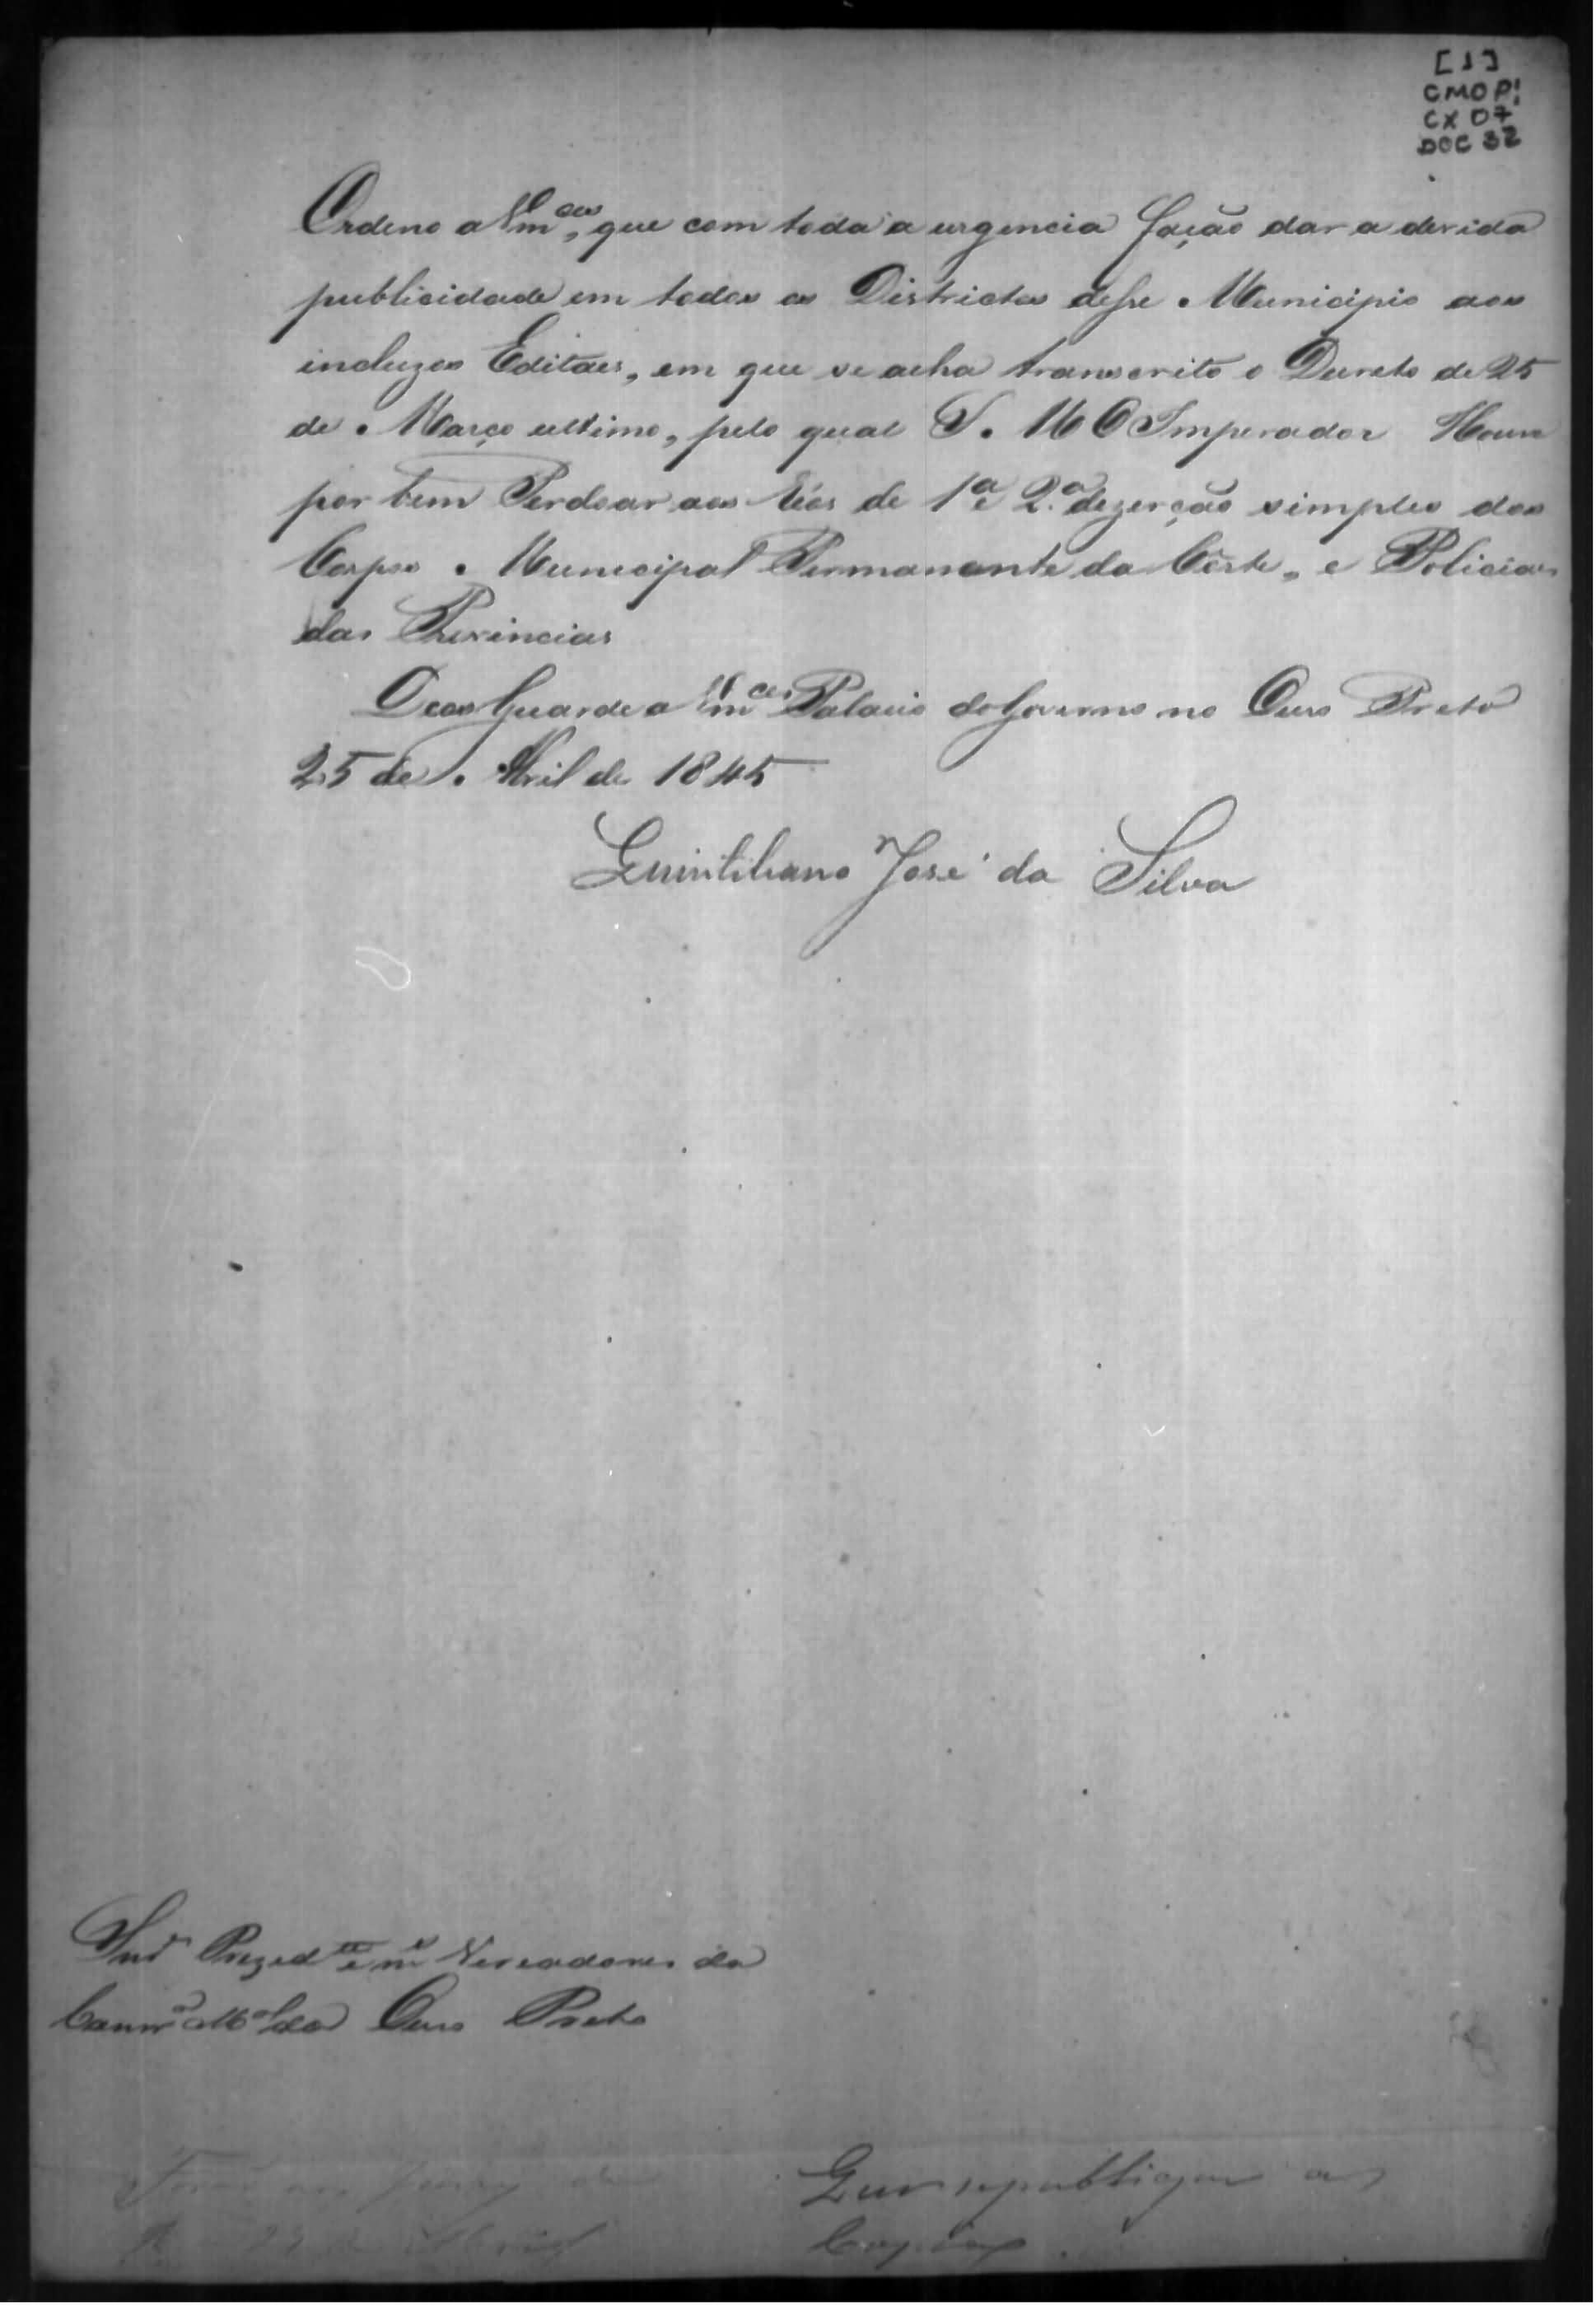 [1]
CMOP!
CX 07
DOC 32
Ordeno a Vm.ces que com toda a urgencia fação dar a devida
publicidade em todos os Districtos desse Municipio aos
incluzos Editaes, em que se acha transcrito o Decreto de 25
de Março ultimo, pelo qual S. M O Imperador Houve
por bem Perdoar aos Réos de 1ª e 2ª dezerção simples dos
Corpos Municipal Permanante da Côrte, e Policiaes
das Provincias
Deos Guarde a Vm.ces Palacio do Governo no Ouro Preto
25 de Abril de 1845
Quintiliano José da Silva
Snrs Prezed.te e m.s Vereadores da
Camr.a M.al do Ouro Preto
publiquem
Copias